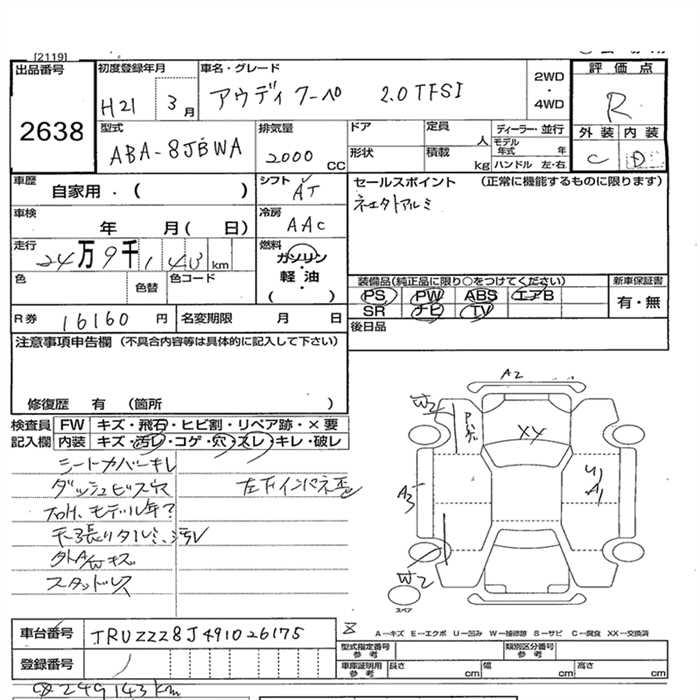 [2119]
出品番号
2638
初度登録年月
H21 3月
車名・グレード
アウディ クーペ 2.0TFSI
2WD
・
4WD
評価点
R
外装 内装
C D
型式
ABA-8JBWA
排気量
2000 CC
ドア
形状
定員 人
積載 kg
ディーラー・並行
モデル年式 年
ハンドル 左・右
車歴
自家用・( )
シフト
AT
セールスポイント (正常に機能するものに限ります)
車検
年 月( 日)
冷房
AAC
走行
24万9千143km
燃料
ガソリン
・
軽油
( )
色
色替
色コード
装備品(純正品に限り○をつけてください)
PS PW ABS エアB
SR ナビ TV
新車保証書
有・無
後日品
R券 16160円
名変期限 月 日
注意事項申告欄 (不具合内容等は具体的に記入して下さい)
修復歴 有 (箇所 )
検査員記入欄
FW キズ・飛石・ヒビ割・リペア跡・×要
内装 キズ・汚レ・コゲ・穴・スレ・キレ・破レ
シートカバーキレ
ダッシュビス穴
左下インパネ歪
モデル年?
天張りタルミ、汚レ
外AWキズ
スタッドレス
A2
W2
XY
U
A1
A3
W2
スペア
車台番号 TRUZZZ8J491026175
登録番号
A－キズ E－エクボ U－凹み W－補修跡 S－サビ C－腐食 XX－交換済
型式指定番号参考
類別区分番号参考
車庫証明用参考 長さ cm 幅 cm 高さ cm
249143km